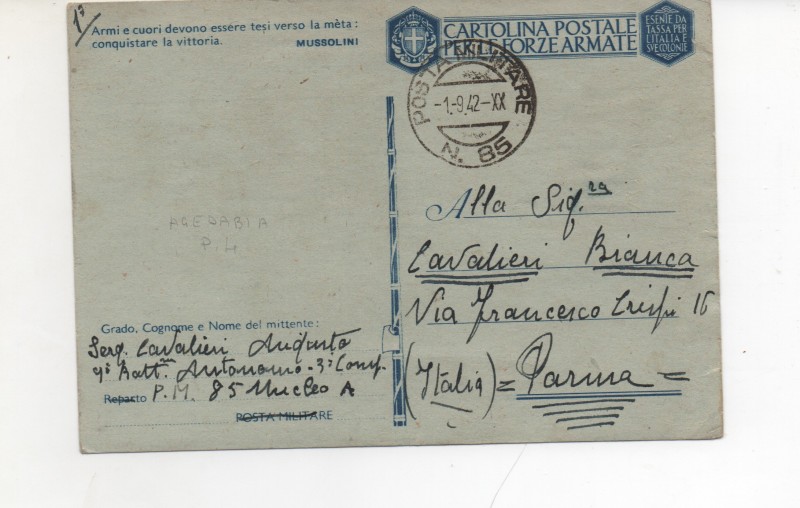 1ª
Armi e cuori devono essere tesi verso la mèta:
conquistare la vittoria. MUSSOLINI
CARTOLINA POSTALE
PER LE FORZE ARMATE
ESENTE DA
TASSA PER
L'ITALIA E
SUE COLONIE
POSTA MILITARE
-1.-9.42-XX
N. 85
AGEDABIA
P. 4
Alla Sig.ra
Cavalieri Bianca
Via Francesco Crispi 16
(Italia) = Parma =
Grado, Cognome e Nome del mittente:
Serg. Cavalieri Augusto
9º Batt.ne Autonomo - 3ª Comp.
Reparto P.M. 85 Nucleo A
POSTA MILITARE